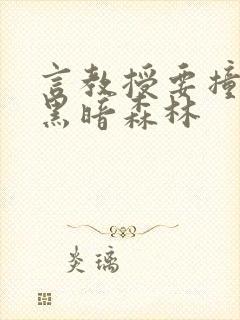 言教授要撞
黑暗森林
炎璃